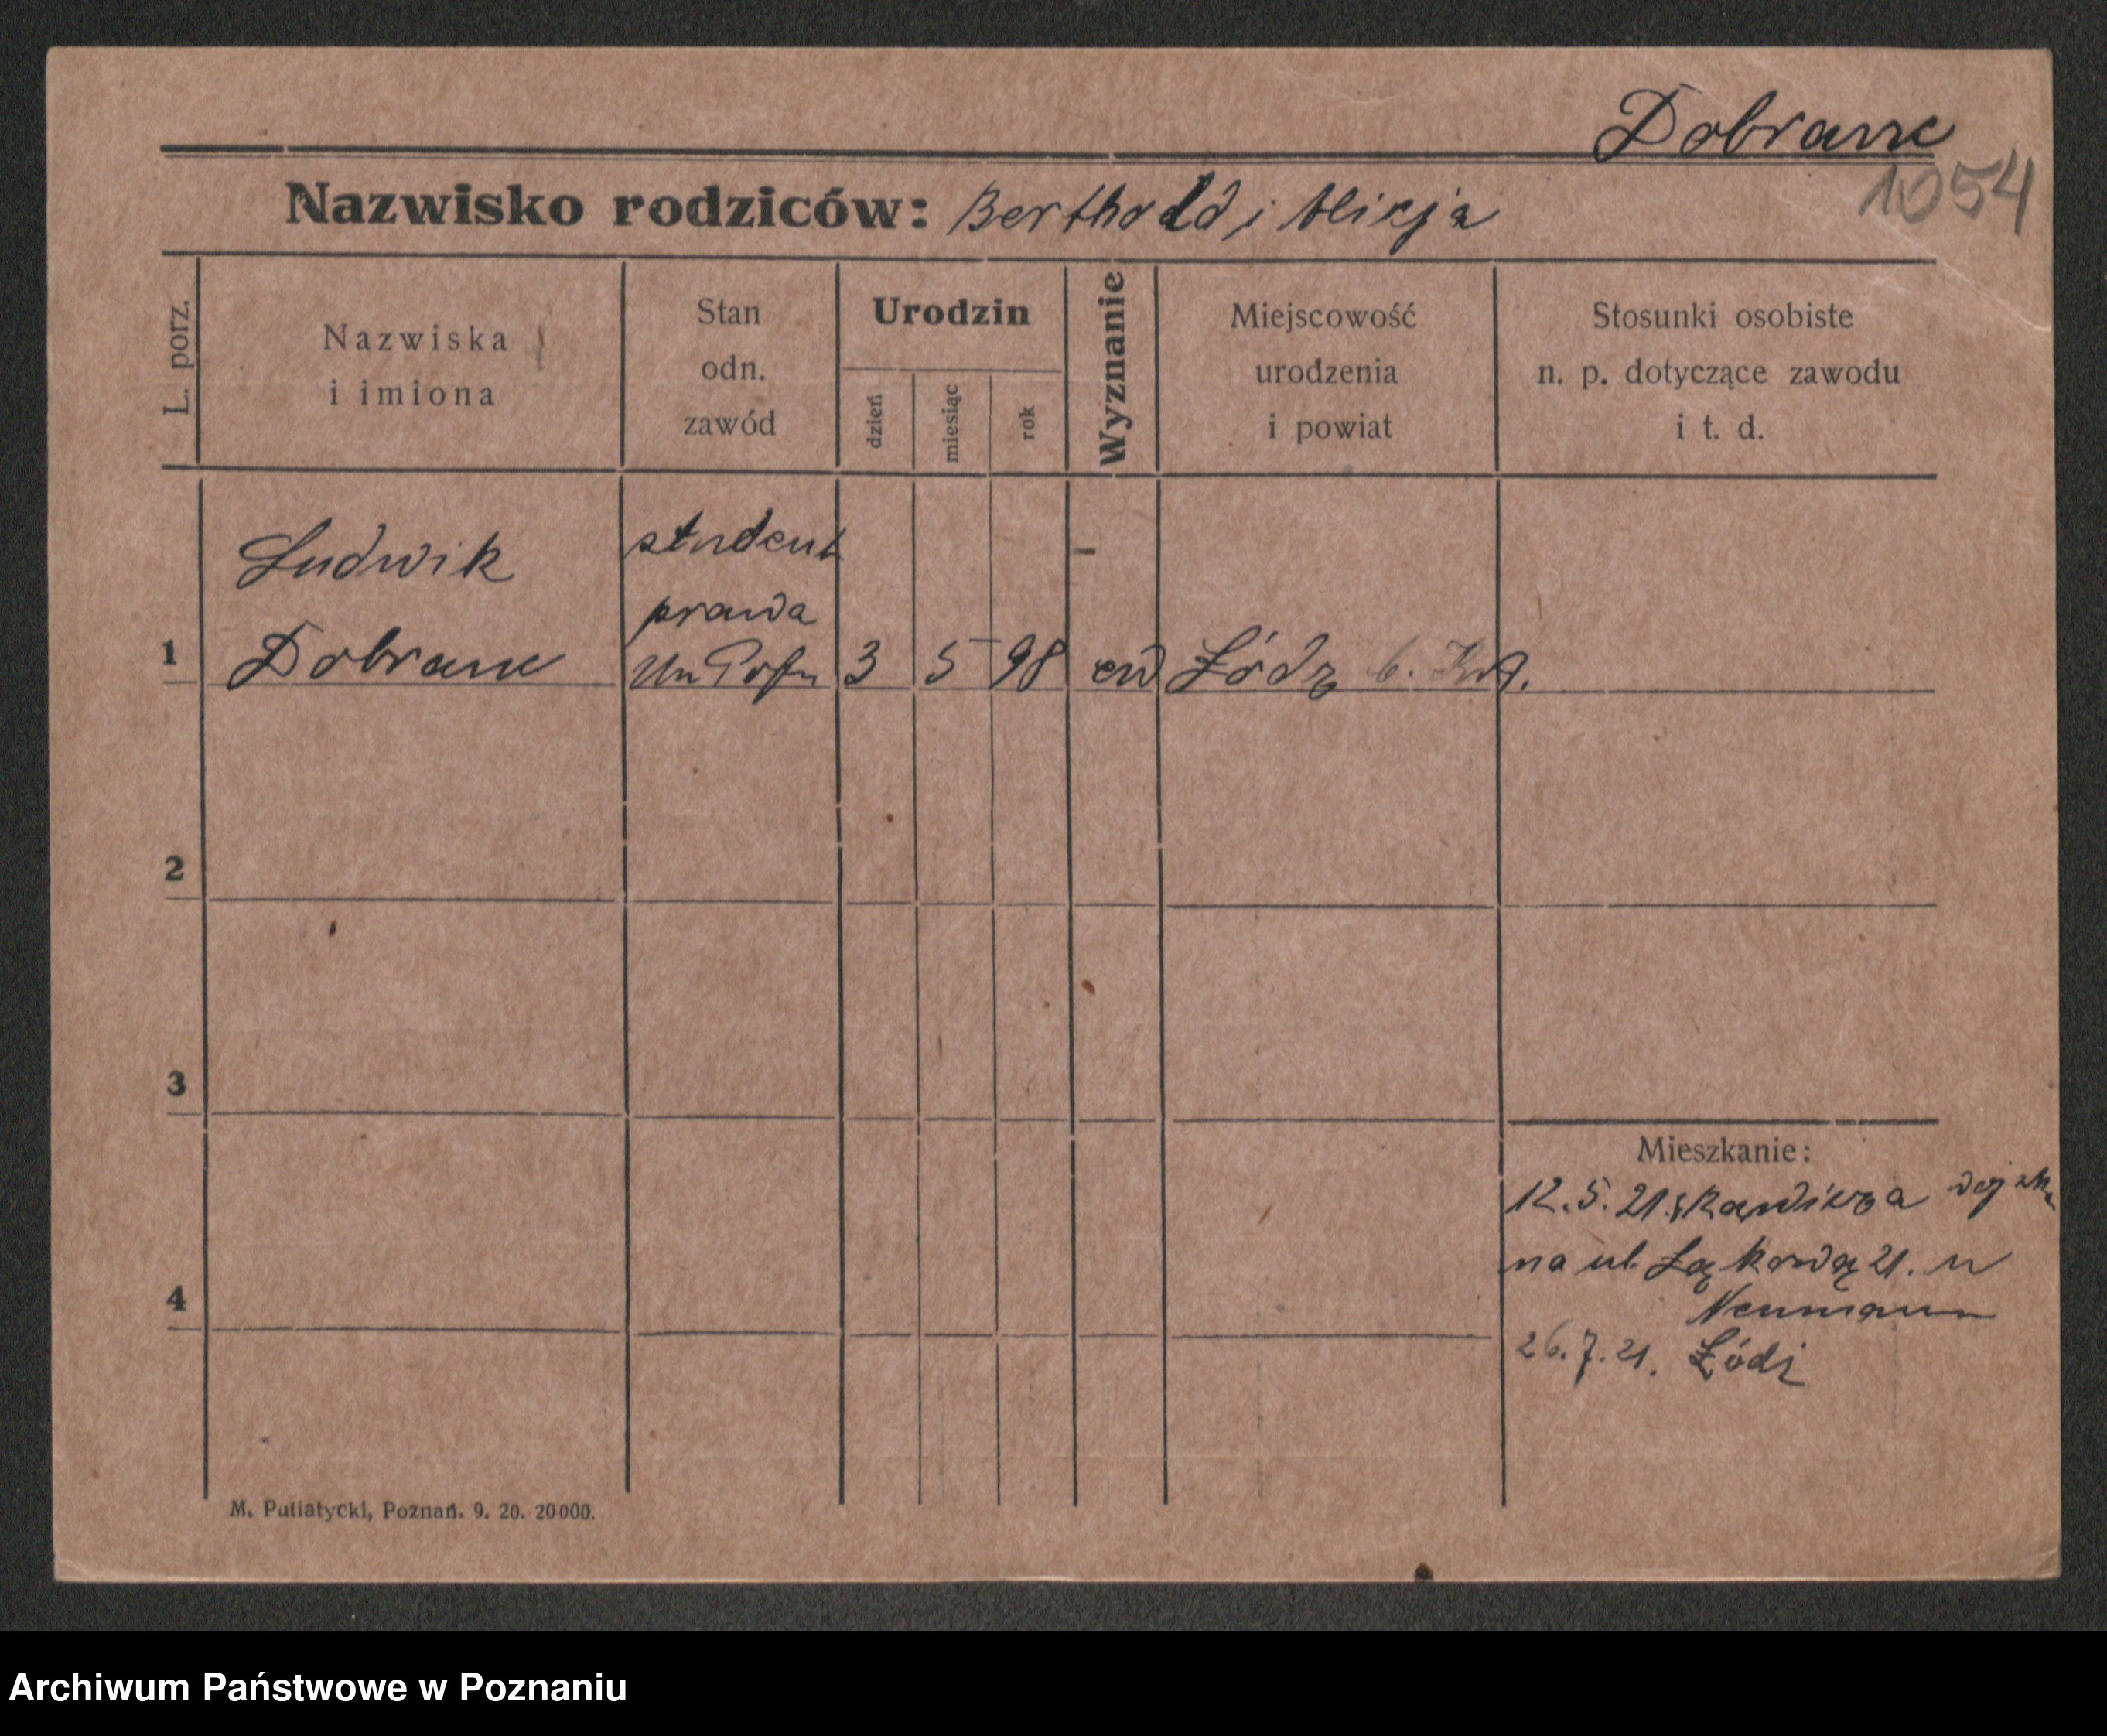 Dobranc
1054
Nazwisko rodziców: Berthold i Alicja
L. porz.
Nazwiska
i imiona
Stan
odn.
zawód
Urodzin
dzień
miesiąc
rok
Wyznanie
Miejscowość
urodzenia
i powiat
Stosunki osobiste
n. p. dotyczące zawodu
i t. d.
Ludwik
Dobranc
student
prawa
Un
1
3 5 98 ew Łódz b. K.
2
3
4
Mieszkanie:
12.5.21 Rawicza
na ul. Łąkową 21. u
Neumann
26.7.21. Łódź
M. Putiatycki, Poznań. 9. 20. 20000.
Archiwum Państwowe w Poznaniu